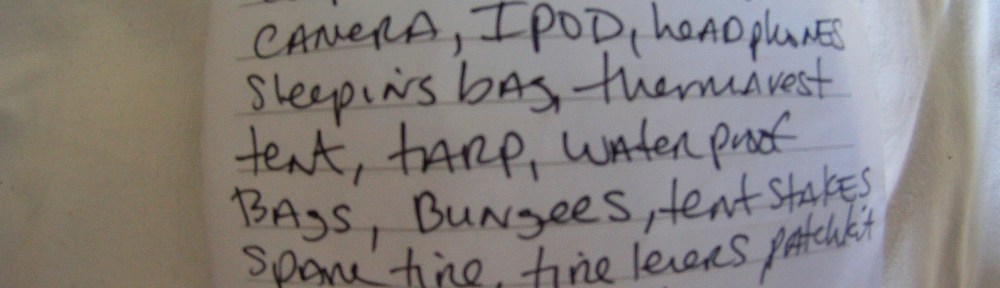 CAMERA, IPOD, headphones
Sleeping bag, thermarest
tent, tARP, waterproof
BAgs, Bungees, tent STAKES
Spare tire, tire levers patchkit